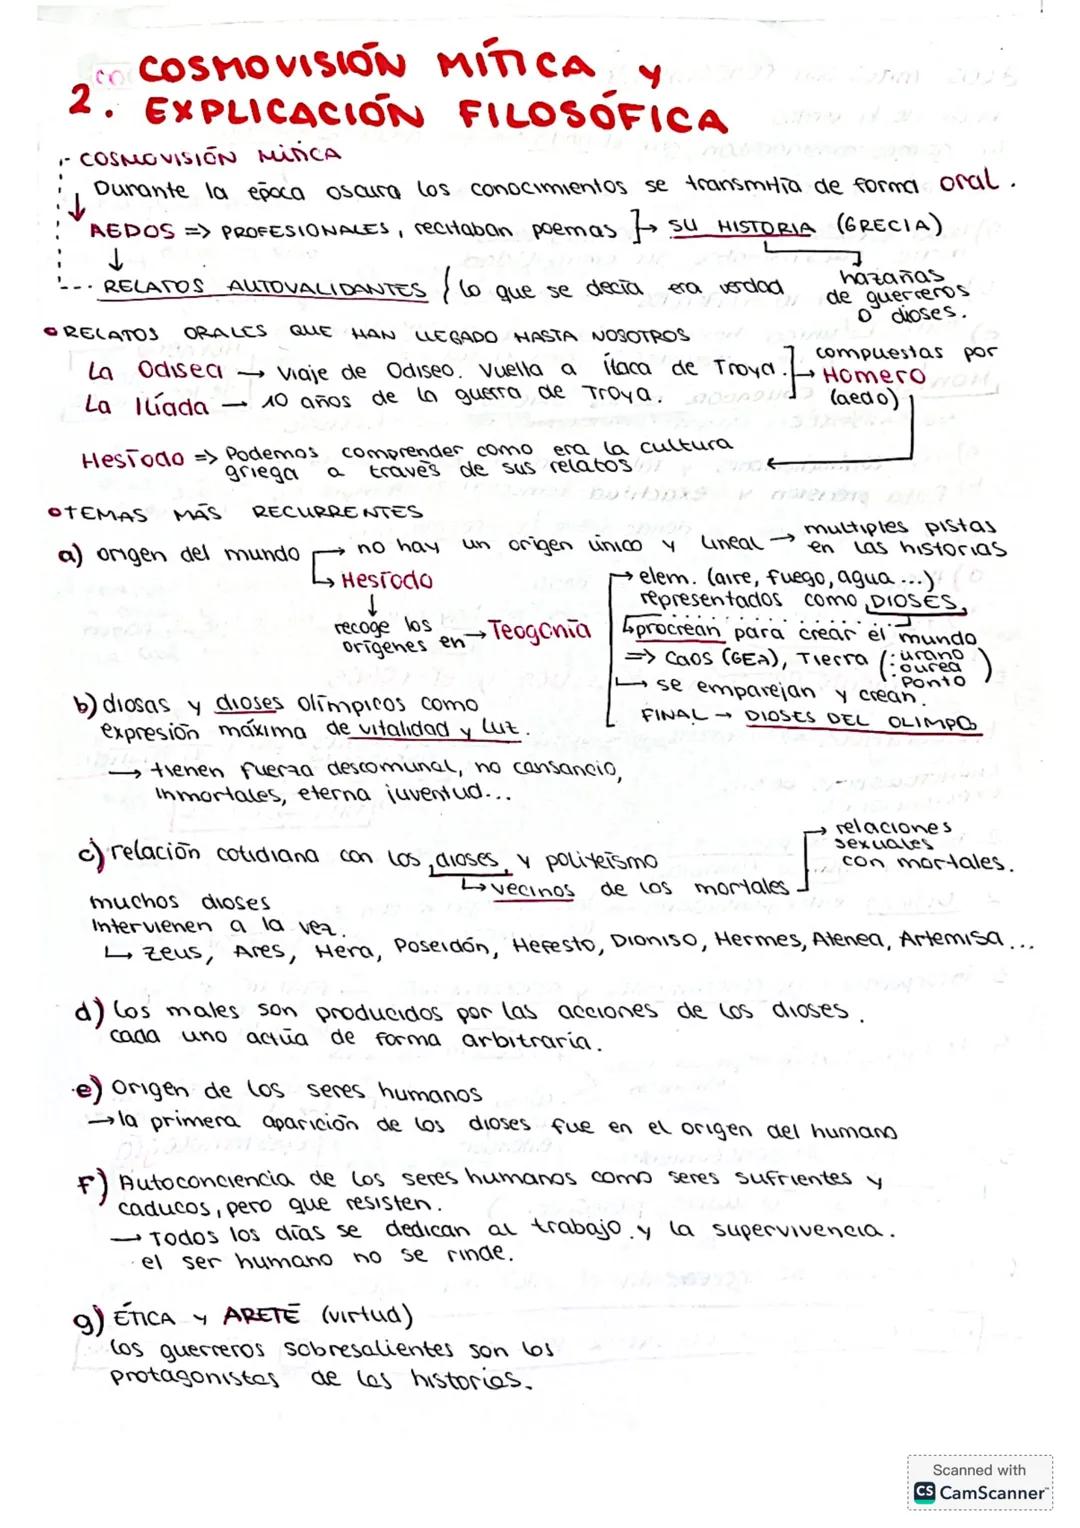 2. COSMOVISIÓN MÍTICA y
EXPLICACIÓN FILOSÓFICA
- COSMOVISIÓN MÍTICA
Durante la época oscura los conocimientos se transmitía de forma oral.
AEDOS => PROFESIONALES, recitaban poemas → SU HISTORIA (GRECIA)
hazañas
de guerreros
o dioses.
RELATOS AUTOVALIDANTES / lo que se decía era verdad
• RELATOS ORALES QUE HAN LLEGADO HASTA NOSOTROS
La Odisea → viaje de Odiseo. Vuelta a Ítaca de Troya.
La Ilíada → 10 años de la guerra de Troya.
compuestas por
Homero
(aedo)
Hesíodo => Podemos comprender como era la cultura
griega a través de sus relatos
• TEMAS MÁS RECURRENTES
a) origen del mundo → no hay un origen único y lineal → multiples pistas
en las historias
→ Hesíodo
recoge los
orígenes en → Teogonía
→ elem. (aire, fuego, agua...)
representados como DIOSES
procrean para crear el mundo
=> Caos (GEA), Tierra (: urano
ourea
Ponto)
→ se emparejan y crean.
FINAL → DIOSES DEL OLIMPO
b) diosas y dioses olímpicos como
expresión máxima de vitalidad y luz.
→ tienen fuerza descomunal, no cansancio,
inmortales, eterna juventud...
c) relación cotidiana con los dioses y politeísmo
→ vecinos de los mortales
→ relaciones
sexuales
con mortales.
muchos dioses
intervienen a la vez.
↳ Zeus, Ares, Hera, Poseidón, Hefesto, Dioniso, Hermes, Atenea, Artemisa...
d) Los males son producidos por las acciones de los dioses.
cada uno actúa de forma arbitraría.
e) Origen de los seres humanos
→ la primera aparición de los dioses fue en el origen del humano
f) Autoconciencia de los seres humanos como seres sufrientes y
caducos, pero que resisten.
→ Todos los días se dedican al trabajo y la supervivencia.
el ser humano no se rinde.
g) ÉTICA y ARETÉ (virtud)
los guerreros sobresalientes son los
protagonistas de las historias.
Scanned with
CS CamScanner